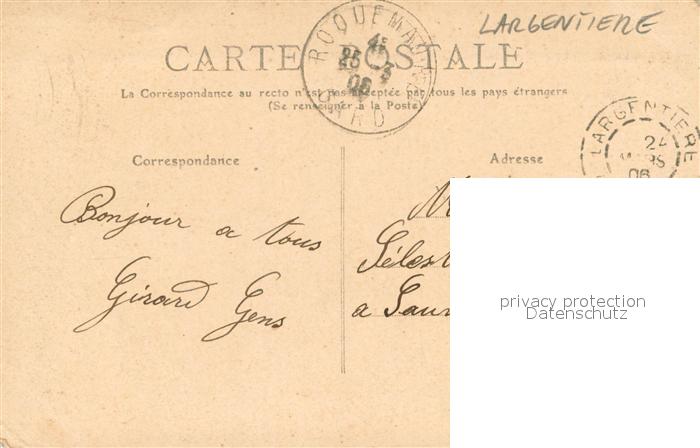 LARGENTIERE
CARTE POSTALE
La Correspondance au recto n'est pas acceptée par tous les pays étrangers
(Se renseigner à la Poste)
ROQUEMAURE
25 3
06
GARD
LARGENTIERE
24
MARS
06
Correspondance
Adresse
Bonjour a tous
Girard Gens
M
Célest
a Sauv
privacy protection
Datenschutz